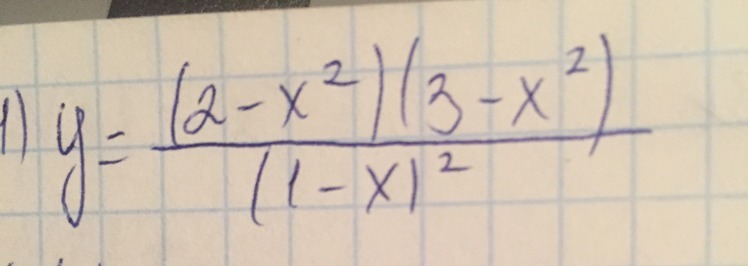 1) y = \frac{(2 - x^2)(3 - x^2)}{(1 - x)^2}